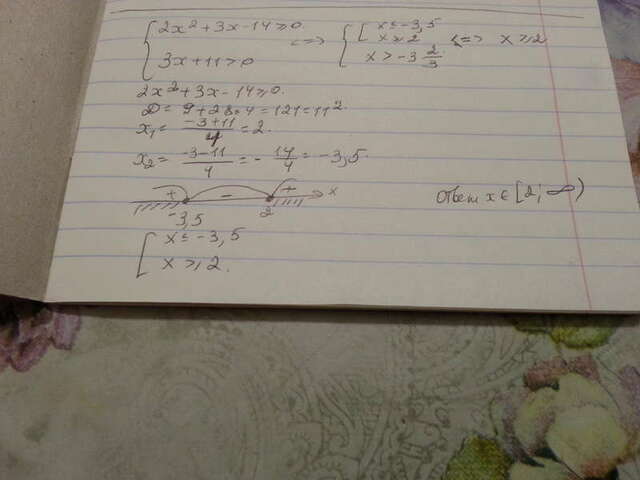 { 2x² + 3x - 14 ≥ 0 <=> { [ x ≤ -3,5 x ≥ 2 <=> x ≥ 2
{ 3x + 11 > 0 { x > -3 2/3
2x² + 3x - 14 ≥ 0.
D = 9 + 28·4 = 121 = 11².
x₁ = (-3 + 11)/4 = 2.
x₂ = (-3 - 11)/4 = -14/4 = -3,5.
+ - + x
-3,5 2
[ x ≤ -3,5
[ x ≥ 2.
Ответ x ∈ [2; ∞)